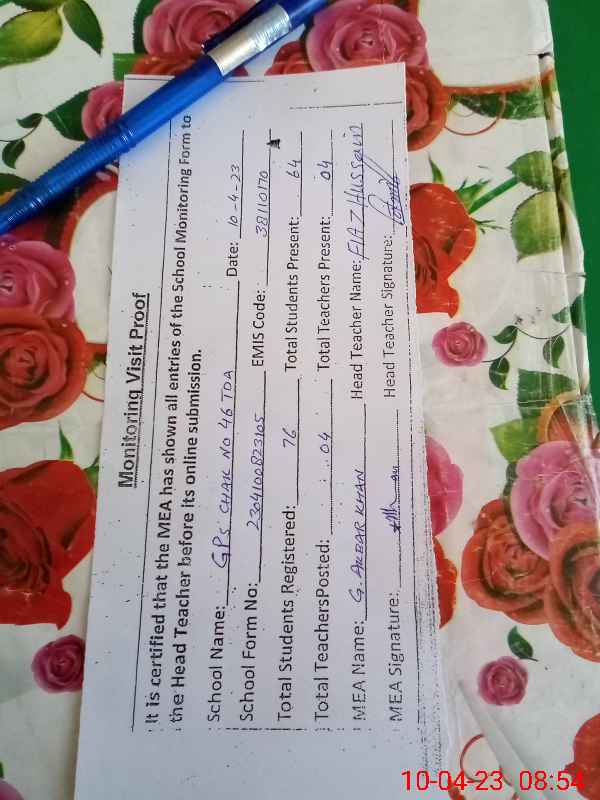 Monitoring Visit Proof
It is certified that the MEA has shown all entries of the School Monitoring Form to
the Head Teacher before its online submission.
School Name: GPS CHAK NO 46 TDA Date: 10-4-23
School Form No: 2304100823105 EMIS Code: 38110170
Total Students Registered: 76 Total Students Present: 64
Total TeachersPosted: 04 Total Teachers Present: 04
MEA Name: G. AKBAR KHAN Head Teacher Name: FIAZ HUSSAIN
MEA Signature: Head Teacher Signature:
10-04-23 08:54